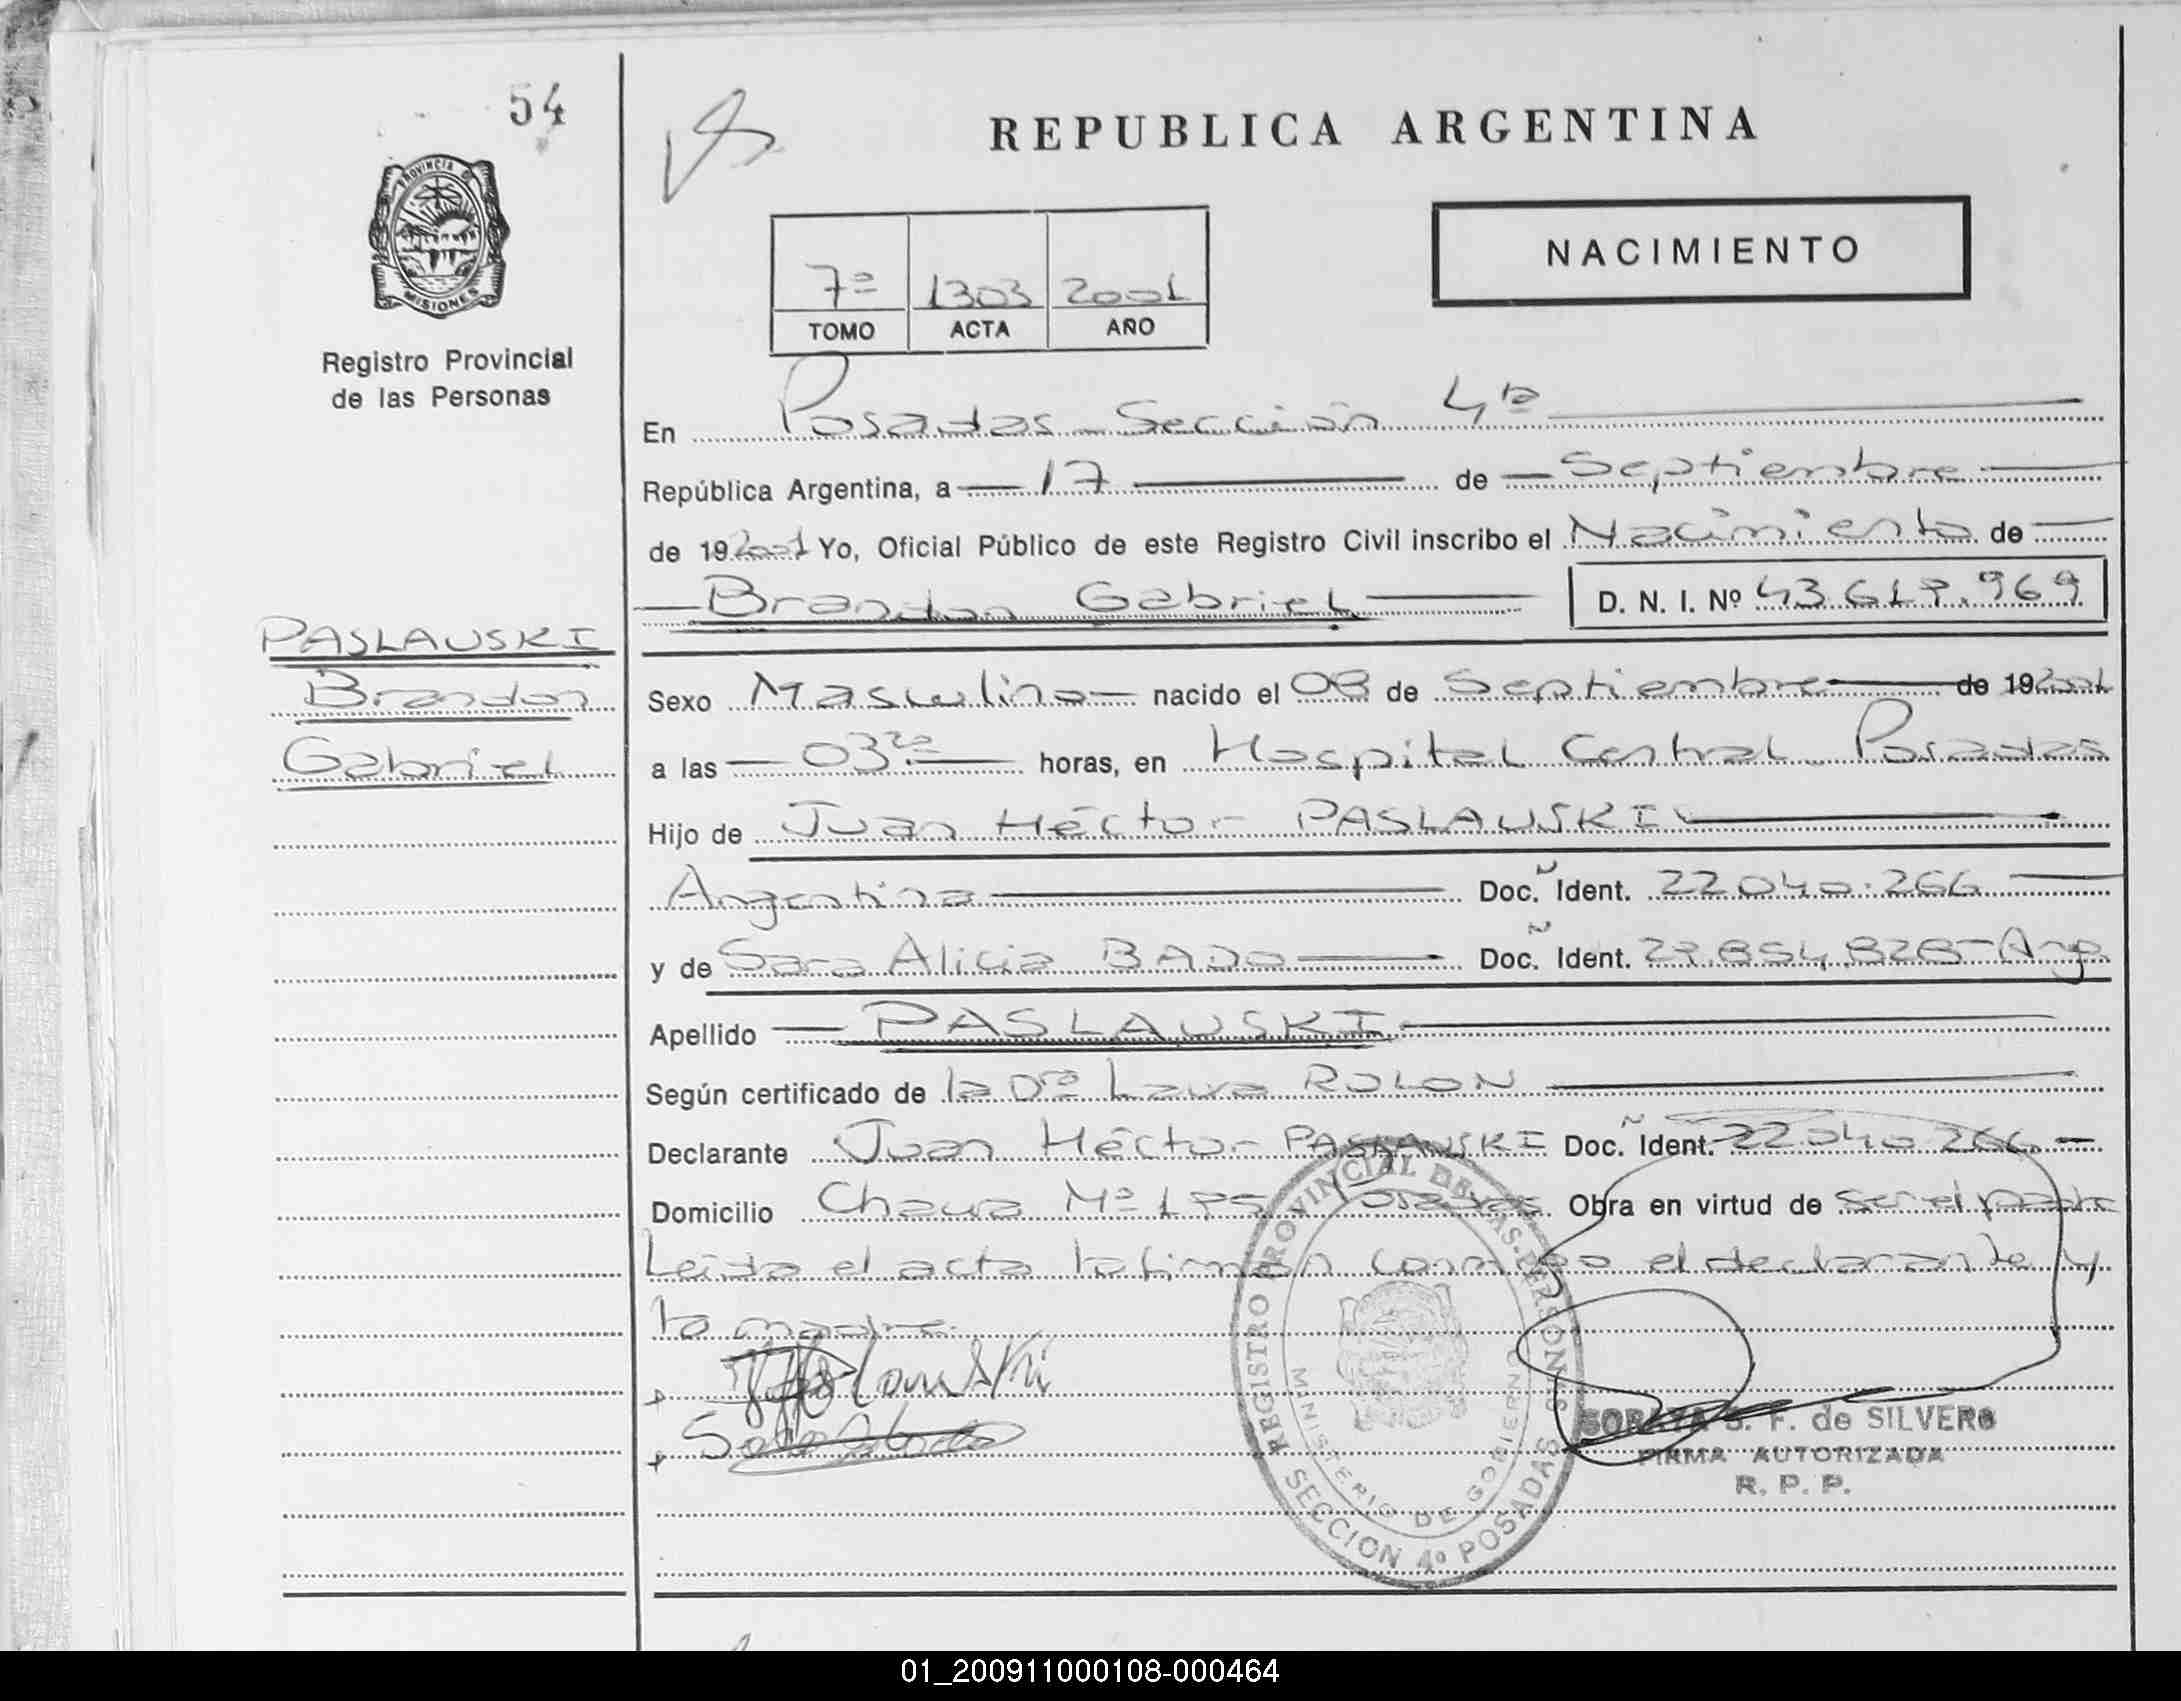 54
REPUBLICA ARGENTINA
PROVINCIA DE
MISIONES
Registro Provincial
de las Personas
7º 1303 2001
TOMO ACTA AÑO
NACIMIENTO
En Posadas Sección 4ta
República Argentina, a 17 de Septiembre
de 19 2001 Yo, Oficial Público de este Registro Civil inscribo el Nacimiento de
Brandon Gabriel D. N. I. Nº 43.617.969
PASLAUSKI
Brandon
Gabriel
Sexo Masculino nacido el 08 de Septiembre de 19 2001
a las 03 horas, en Hospital Central Posadas
Hijo de Juan Héctor PASLAUSKI
Argentina Doc. Ident. 22.040.266
y de Sara Alicia BADO Doc. Ident. 27.854.828 Arg.
Apellido PASLAUSKI
Según certificado de la Dra Laura ROLON
Declarante Juan Héctor PASLAUSKI Doc. Ident. 22.040.266
Domicilio Posadas Obra en virtud de ser el padre
Leida el acta la firman conmigo el declarante y
la madre.
REGISTRO PROVINCIAL DE LAS PERSONAS
MINISTERIO DE GOBIERNO
SECCION 4º POSADAS
SORAYA S. F. de SILVERO
FIRMA AUTORIZADA
R. P. P.
01_200911000108-000464